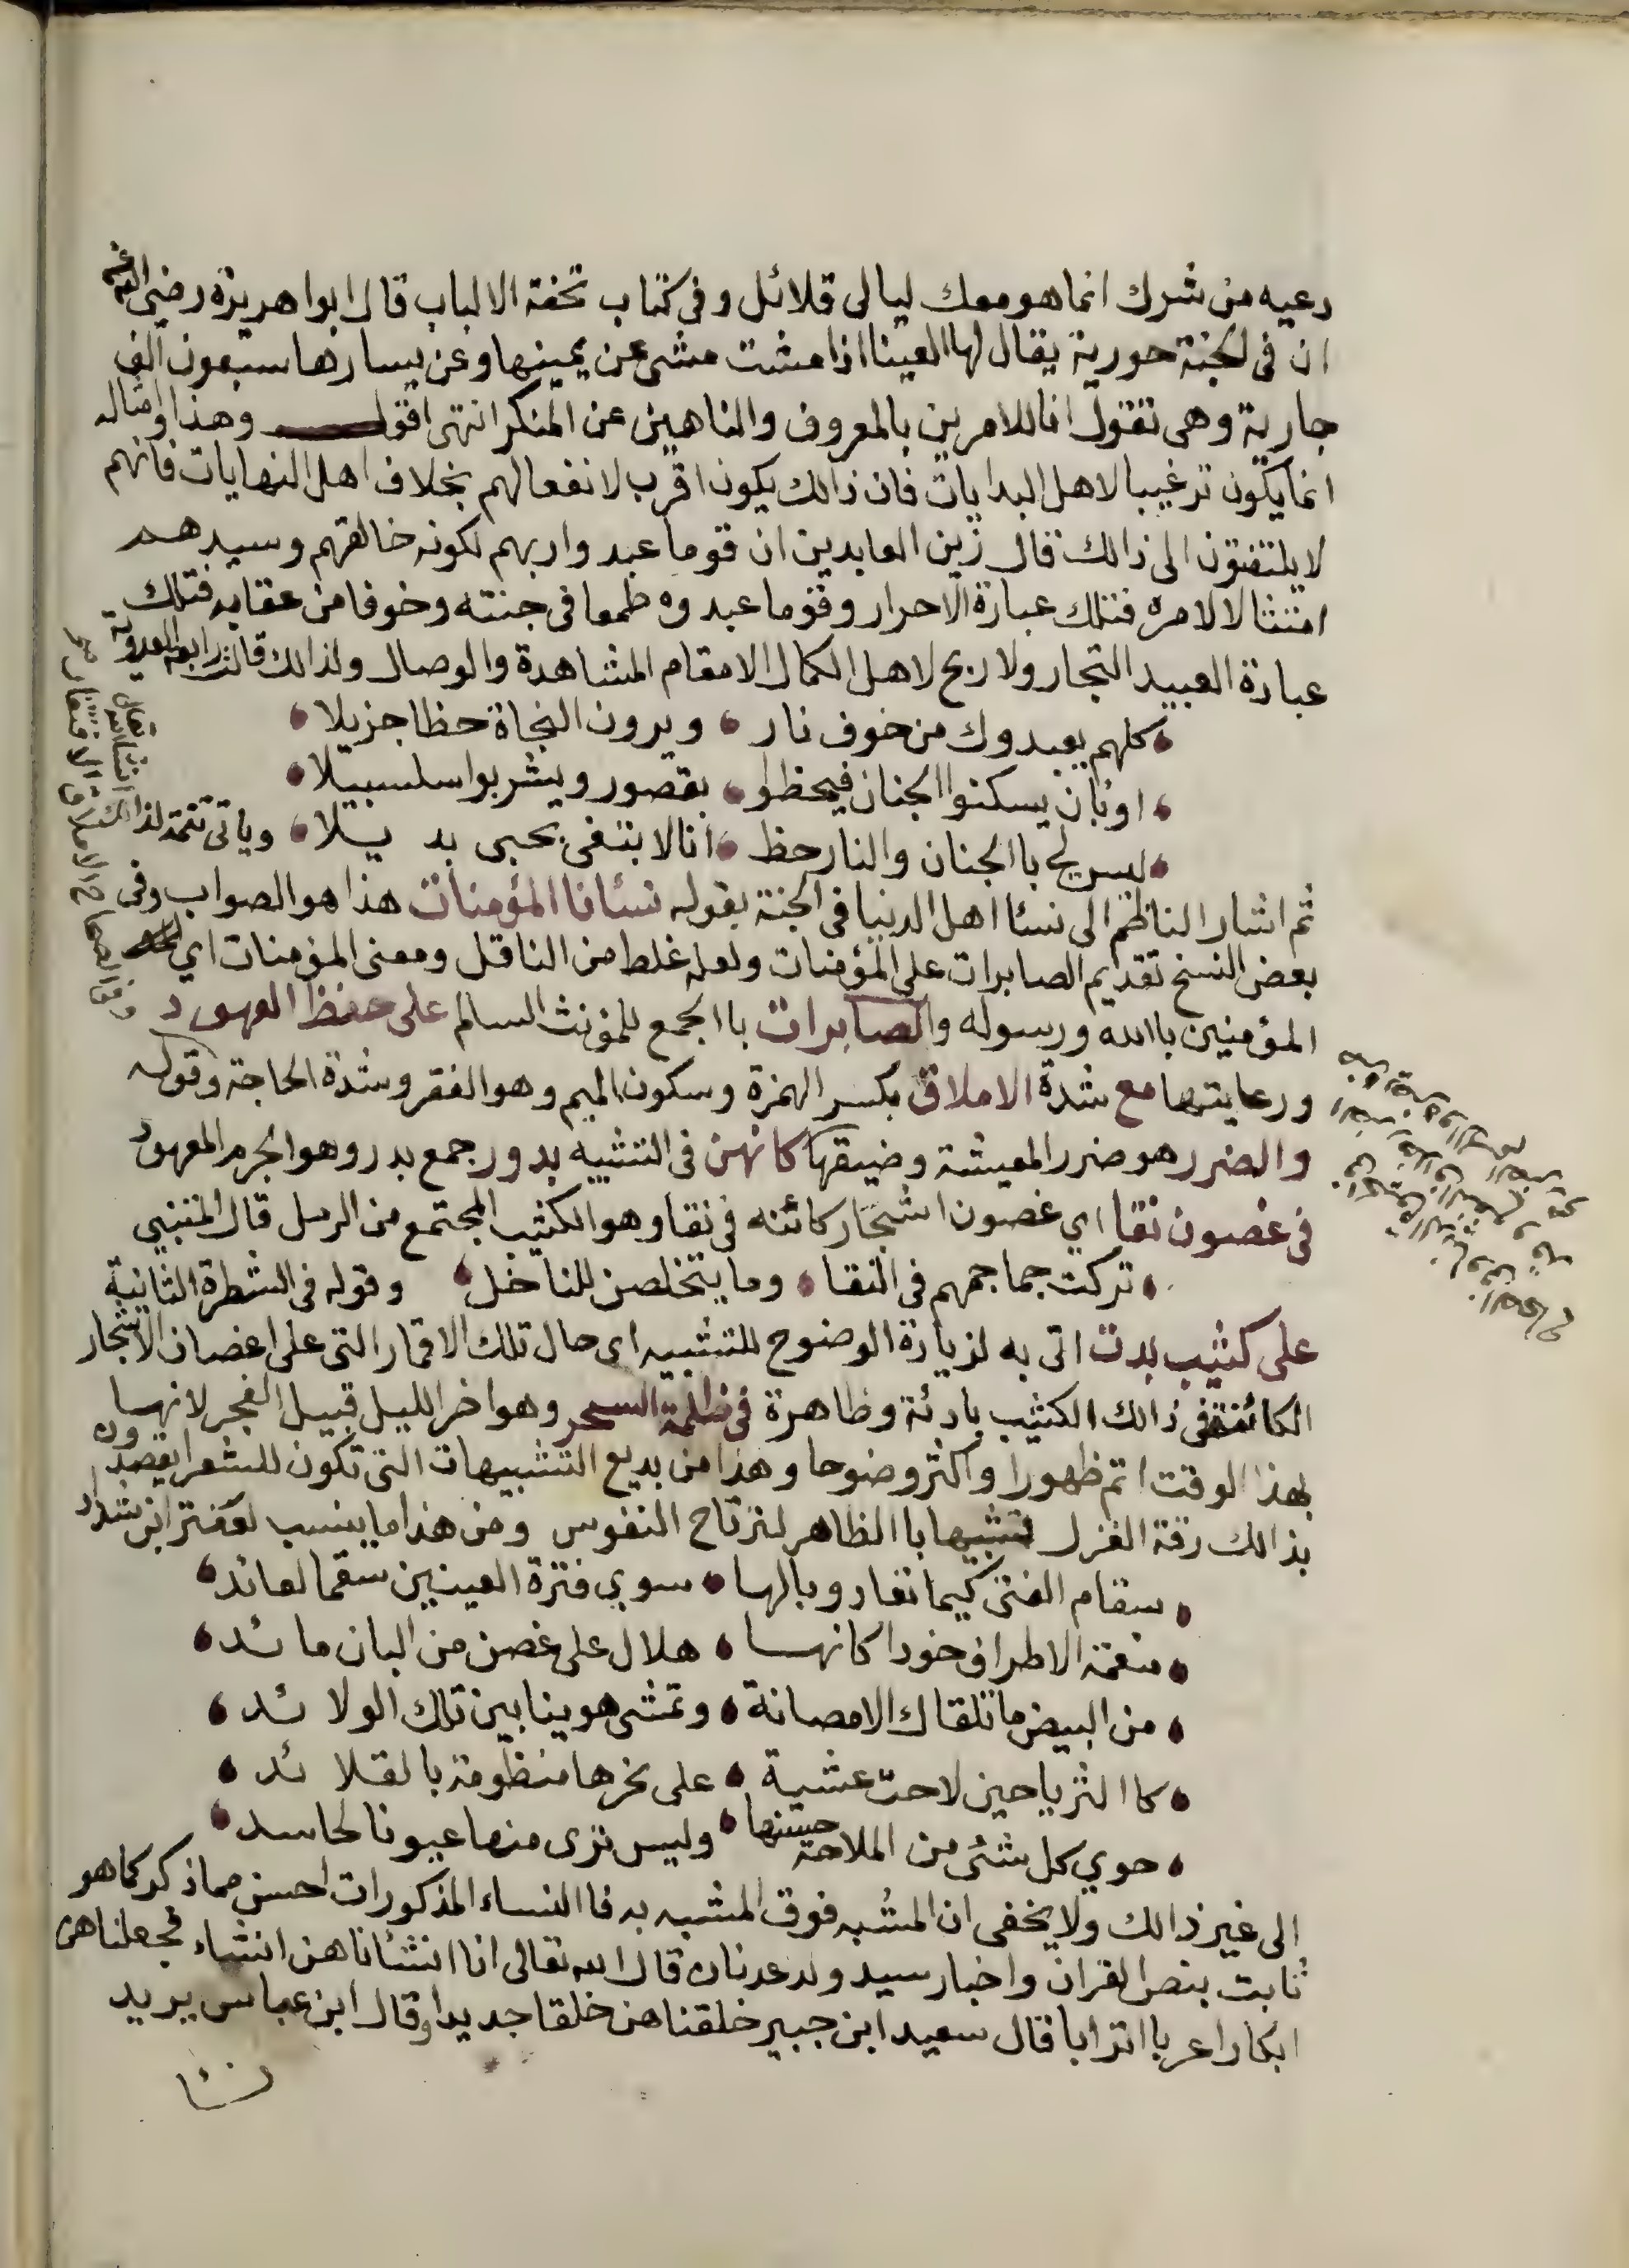 دعيه من شرك انما هو معك ليالى قلائل وفى كتاب تحفة الالباب قال ابوا هريرة رضى الله عنه
ان فى الجنة حورية يقال لها العينا اذا مشت مشى عن يمينها وعن يسارها سبعون الف
جارية وهى تقول انا للامرين بالمعروف والناهين عن المنكر انتهى اقول وهذا وامثاله
انما يكون ترغيبا لاهل البدايات فان ذالك يكون اقرب لانفعالهم بخلاف اهل النهايات فانهم
لا يلتفتون الى ذالك قال زين العابدين ان قوما عبدوا ربهم لكونه خالقهم وسيدهم
امتثالا لامره فتلك عبادة الاحرار وقوما عبدوه طمعا فى جنته وخوفا من عقابه فتلك
عبادة العبيد التجار ولا ربح لاهل الكمال الا مقام المشاهدة والوصال ولذالك قالت رابعة العدوية
كلهم يعبدوك من خوف نار ويرون النجاة حظا جزيلا
او بان يسكنوا الجنان فيحظوا بقصور ويشربوا سلسبيلا
ليس لي باالجنان والنار حظ انا لا ابتغى بحبى بديلا وياتى تتمة لذالك ان شاء الله تعالى
ثم اشار الناظم الى نسئا اهل الدنيا فى الجنة بقوله نسئانا المؤمنات هذا هو الصواب وفى
بعض النسخ تقديم الصابرات على المؤمنات ولعله غلط من الناقل ومعنى المؤمنات اي
المؤمنين باالله ورسوله والصابرات باالجمع للمؤنث السالم على حفظ العهود
ورعايتها مع شدة الاملاق بكسر الهمزة وسكون الميم وهو الفقر وشدة الحاجة وقوله
والضرر هو ضرر المعيشة وضيقها كانهن فى التشبيه بدور جمع بدر وهو الجرم المعهود
فى غصون نقا اي غصون اشجار كائنه فى نقا وهو الكثيب المجتمع من الرمل قال المتنبي
تركت جماجمهم فى النقا وما يتخلصن للناخل وقوله فى الشطرة الثانية
على كثيب بدت اتى به لزيادة الوضوح للتشبيه اى حال تلك الاقمار التى على اغصان الاشجار
الكائنة فى ذالك الكثيب بادئة وظاهرة فى ظلمة السحر وهو اخر الليل قبيل الفجر لانها
بهذا الوقت اتم ظهورا واكثر وضوحا وهذا من بديع التشبيهات التى تكون للشعرا يقصدون
بذالك رقة الغزل تشبيها باالظاهر لترتاح النفوس ومن هذا ما ينسب لعنتر ابن شداد
سقام الفتى كيما تغار وبالها سوي فترة العينين سقما لعائد
منعمة الاطراف خودا كانها هلال على غصن من البان مائد
من البيض ما تلقاك الا مصانة وتمشى هوينا بين تلك الولائد
كاالثريا حين لاحت عشية على نحرها منظومة بالقلائد
حوي كل شئى من الملاحة حسنها وليس ترى منها عيونا لحاسد
الى غير ذالك ولا يخفى ان المشبه فوق المشبه به فاالنساء المذكورات احسن مما ذكر كما هو
ثابت بنص القران واخبار سيد ولد عدنان قال الله تعالى انا انشئاناهن انشاء فجعلناهن
ابكارا عربا اترابا قال سعيد ابن جبير خلقناهن خلقا جديدا وقال ابن عباس يريد
نسئا
وفى الصحاح الاملاق الافتقار